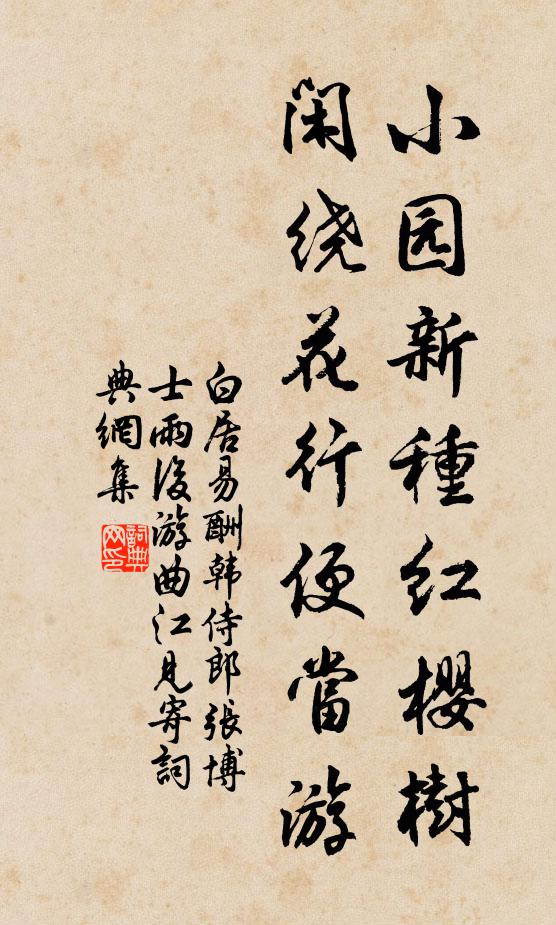 小园新種红櫻樹
闲绕花行便當游
白居易酬韩侍郎張博
士雨後游曲江見寄詞
典網集
詞典
网印